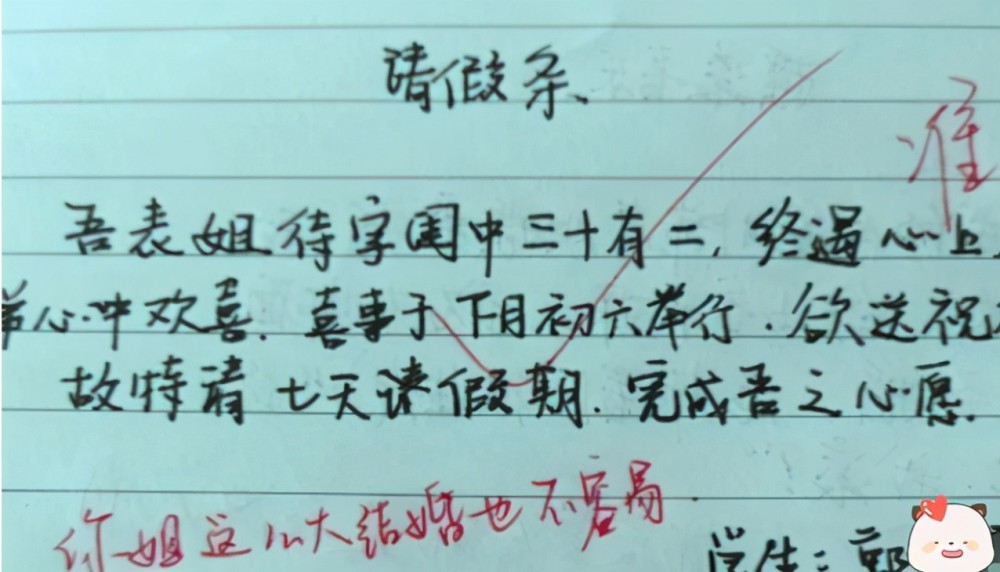 请假条
准
吾表姐待字闺中三十有二，终遇心上
心中欢喜．喜事于下月初六举行．欲送祝
故特请七天请假期．完成吾之心愿．
你姐这么大结婚也不容易．
学生：郭